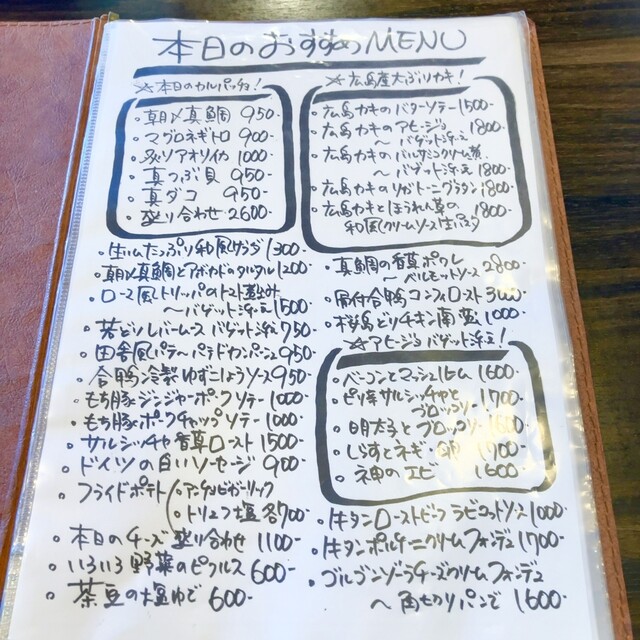 本日のおすすめMENU
☆本日のカルパッチョ!
・朝〆真鯛 950-
・マグロネギトロ 900-
・アオリイカ 1000-
・真つぶ貝 950-
・真ダコ 950-
・盛り合わせ 2600-
・生ハムたっぷり和風サラダ 1300-
・朝〆真鯛とアボカドのタルタル 1200-
・ローマ風トリッパのトマト煮込み
〜バゲット添え 1500-
・若どりレバームース バゲット添え 750-
・田舎風パテ〜パテドカンパーニュ 950-
・合鴨冷製ゆずこしょうソース 950-
・もち豚ジンジャーポークソテー 1000-
・もち豚ポークチャップソテー 1000-
・サルシッチャ香草ロースト 1500-
・ドイツの白いソーセージ 900-
・フライドポテト
・アンチョビガーリック
・トリュフ塩 各700-
・本日のチーズ盛り合わせ 1100-
・いろいろ野菜のピクルス 600-
・茶豆の塩ゆで 600-
☆広島産大ぶりカキ!
・広島カキのバターソテー 1500-
・広島カキのアヒージョ 1800-
〜バゲット添え
・広島カキのバルサミコクリーム煮
〜バゲット添え 1800-
・広島カキのリガトーニグラタン 1800-
・広島カキとほうれん草の 1800-
和風クリームソース生パスタ
・真鯛の香草ポワレ 2800-
〜ベルモットソース
・骨付合鴨コンフィロースト
・桜島どりチキン南蛮 1000-
☆アヒージョ バゲット添え!
・ベーコンとマッシュルーム 1600-
・ピリ辛サルシッチャと 1700-
ブロッコリー
・明太子とブロッコリー 1600-
・しらすとネギ 1700-
・神のエビ 1600-
・牛タンローストビーフ ラビゴットソース 1000-
・牛タンポルチーニクリームフォンデュ 1700-
・ゴルゴンゾーラチーズクリームフォンデュ
〜角切りパンで 1600-